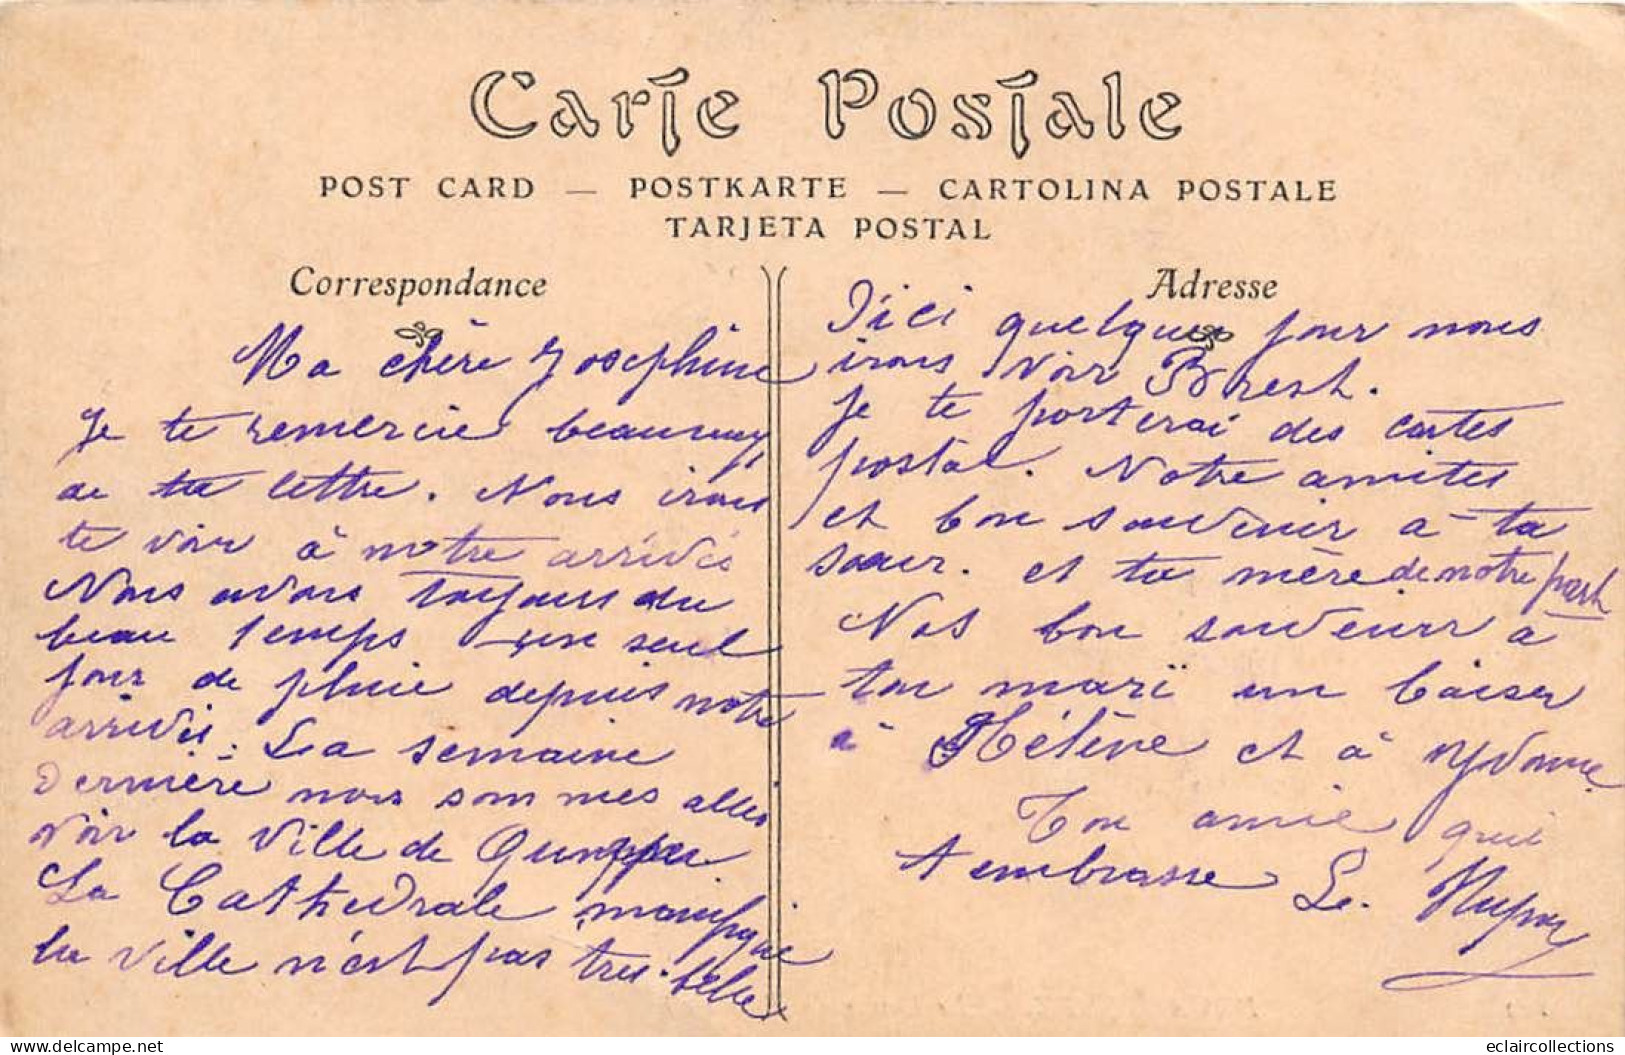 Carte Postale
POST CARD — POSTKARTE — CARTOLINA POSTALE
TARJETA POSTAL
Correspondance
Ma chère Josephine
Je te remercie beaucoup
de ta lettre. Nous irons
te voir à notre arrivés
Nous avons toujours du
beau temps un seul
jour de pluie depuis notre
arrivés. La semaine
Dernière nous sommes allés
voir la ville de Qumper
La Cathedrale manifique
la ville n'est pas tres belle
Adresse
D'ici quelques jour nous
irons voir Brest.
Je te porterai des cartes
postal. Notre amités
et bon souvenir à ta
soeur. et ta mère de notre part
Nos bon souvenir à
ton mari un baiser
à Hélène et à Yvonne
Ton amie qui
t embrasse Le.
eclaircollections